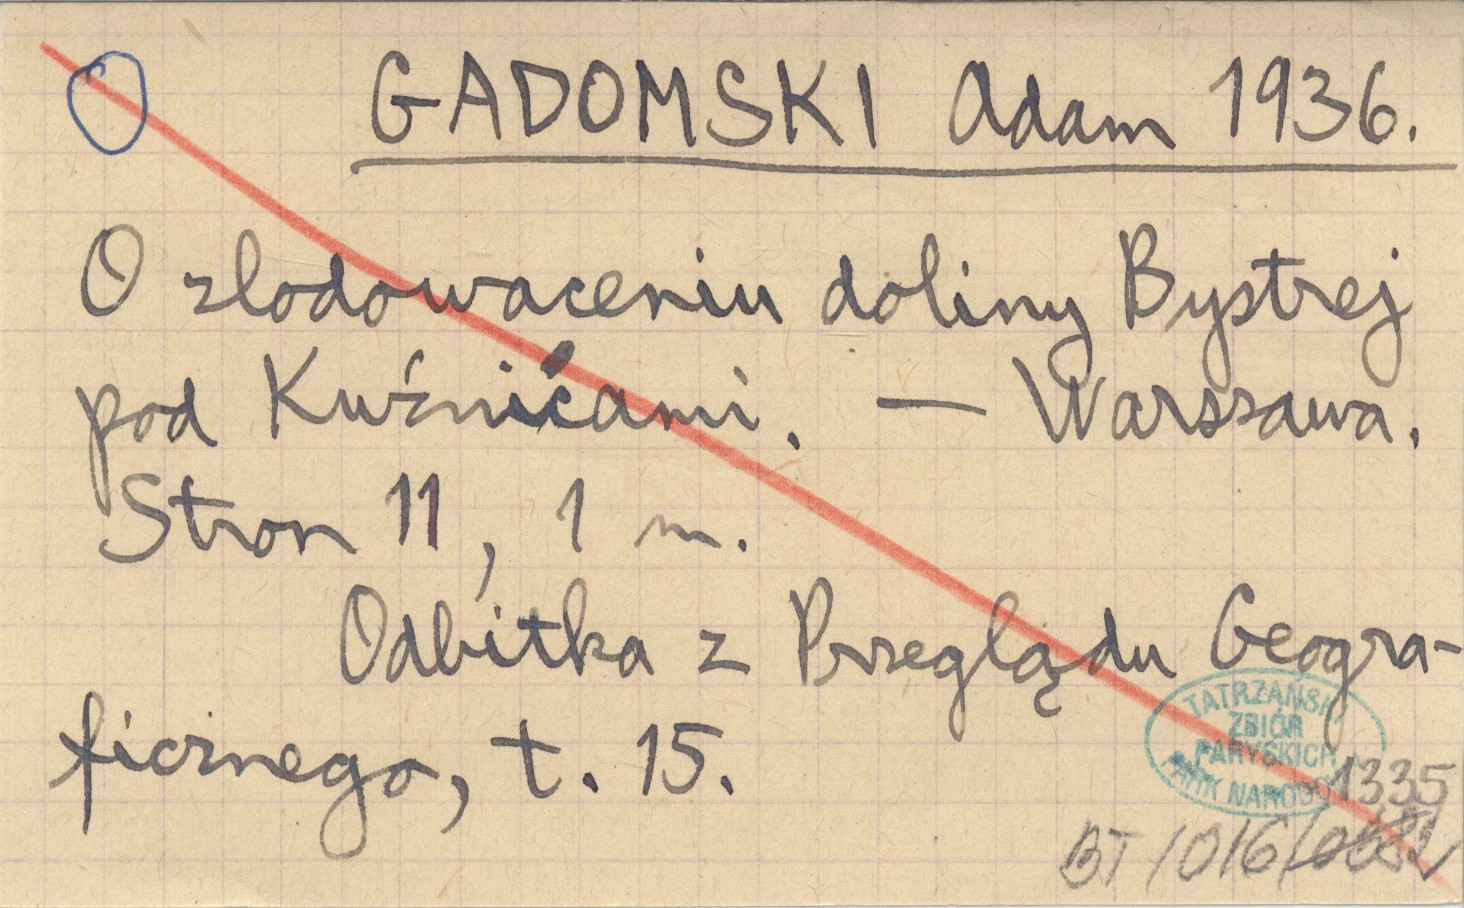 GADOMSKI Adam 1936.
O zlodowaceniu doliny Bystrej
pod Kuźnicami. — Warszawa.
Stron 11, 1 m.
Odbitka z Przeglądu Geogra-
ficznego, t. 15.
TATRZAŃSKI
ZBIÓR
PARYSKICH
PARK NARODO
1335
BT/016/